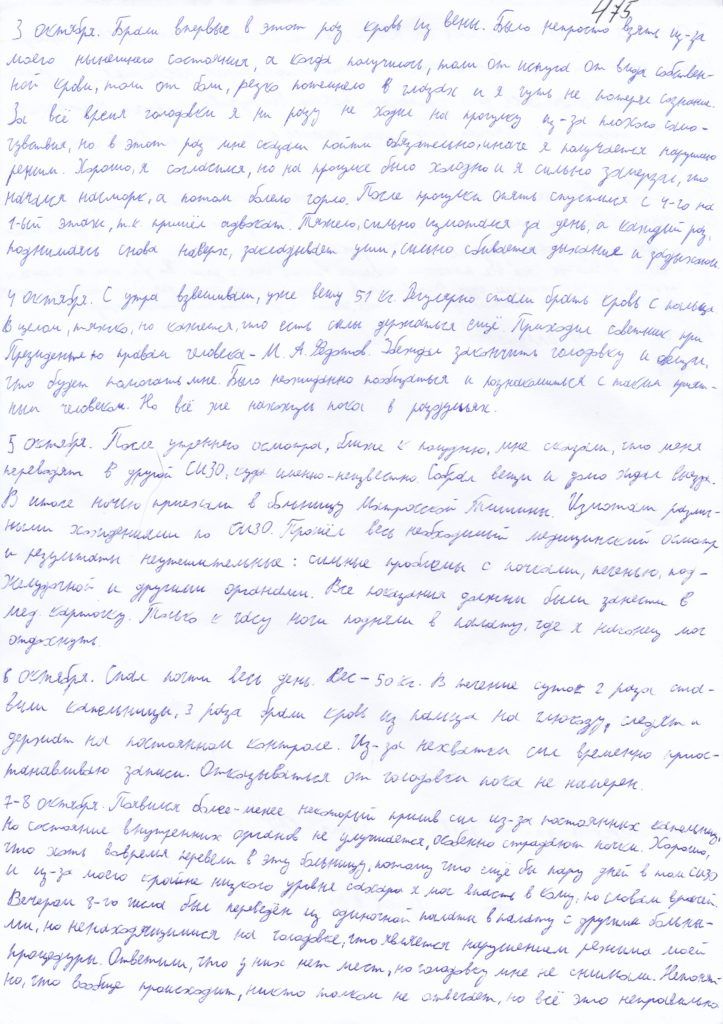 475
3 октября. Брали впервые в этот раз кровь из вены. Было непросто взять из-за
моего нынешнего состояния, а когда получилось, то ли от испуга от вида собствен-
ной крови, то ли от боли, резко потемнело в глазах и я чуть не потерял сознание.
За всё время голодовки я ни разу не ходил на прогулку из-за плохого само-
чувствия, но в этот раз мне сказали пойти обязательно, иначе я получается нарушаю
режим. Хорошо, я согласился, но на прогулке было холодно и я сильно замёрз, что
начался насморк, а потом болело горло. После прогулки опять спустился с 4-го на
1-ый этаж, т.к. пришёл адвокат. Тяжело, сильно измотался за день, а каждый раз,
поднимаясь снова наверх, закладывает уши, сильно сбивается дыхание и задыхаюсь.
4 октября. С утра взвешивали, уже вешу 51 кг. Регулярно стали брать кровь с пальца.
В целом, тяжко, но кажется, что есть силы держаться ещё. Приходил советник при
Президенте по правам человека - М. А. Федотов. Убеждал закончить голодовку и обещал,
что будет помогать мне. Было неожиданно пообщаться и познакомиться с таким прият-
ным человеком. Но всё же нахожусь пока в раздумьях.
5 октября. После утреннего осмотра, ближе к полудню, мне сказали, что меня
переводят в другой СИЗО, куда именно - неизвестно. Собрал вещи и долго ждал выезда.
В итоге ночью приехали в больницу Матросской Тишины. Измотали различ-
ными хождениями по СИЗО. Прошёл весь необходимый медицинский осмотр
и результаты неутешительные: сильные проблемы с почками, печенью, под-
желудочной и другими органами. Все показания должны были занести в
мед. карточку. Только к часу ночи подняли в палату, где я наконец мог
отдохнуть.
6 октября. Спал почти весь день. Вес - 50 кг. В течение суток 2 раза ста-
вили капельницы, 3 раза брали кровь из пальца на глюкозу, следят и
держат на постоянном контроле. Из-за нехватки сил временно приос-
танавливаю записи. Отказываться от голодовки пока не намерен.
7-8 октября. Появился более-менее некоторый прилив сил из-за постоянных капельниц,
но состояние внутренних органов не улучшается, особенно страдают почки. Хорошо,
что хоть вовремя перевели в эту больницу, потому что ещё бы пару дней в том СИЗО
и из-за моего крайне низкого уровня сахара я мог впасть в кому, по словам врачей.
Вечером 7-го числа был переведён из одиночной палаты в палату с другими больны-
ми, но не находящимися на голодовке, что является нарушением режима моей
процедуры. Ответили, что у них нет мест, но голодовку мне не снимали. Непонят-
но, что вообще происходит, никто толком не отвечает, но всё это неправильно